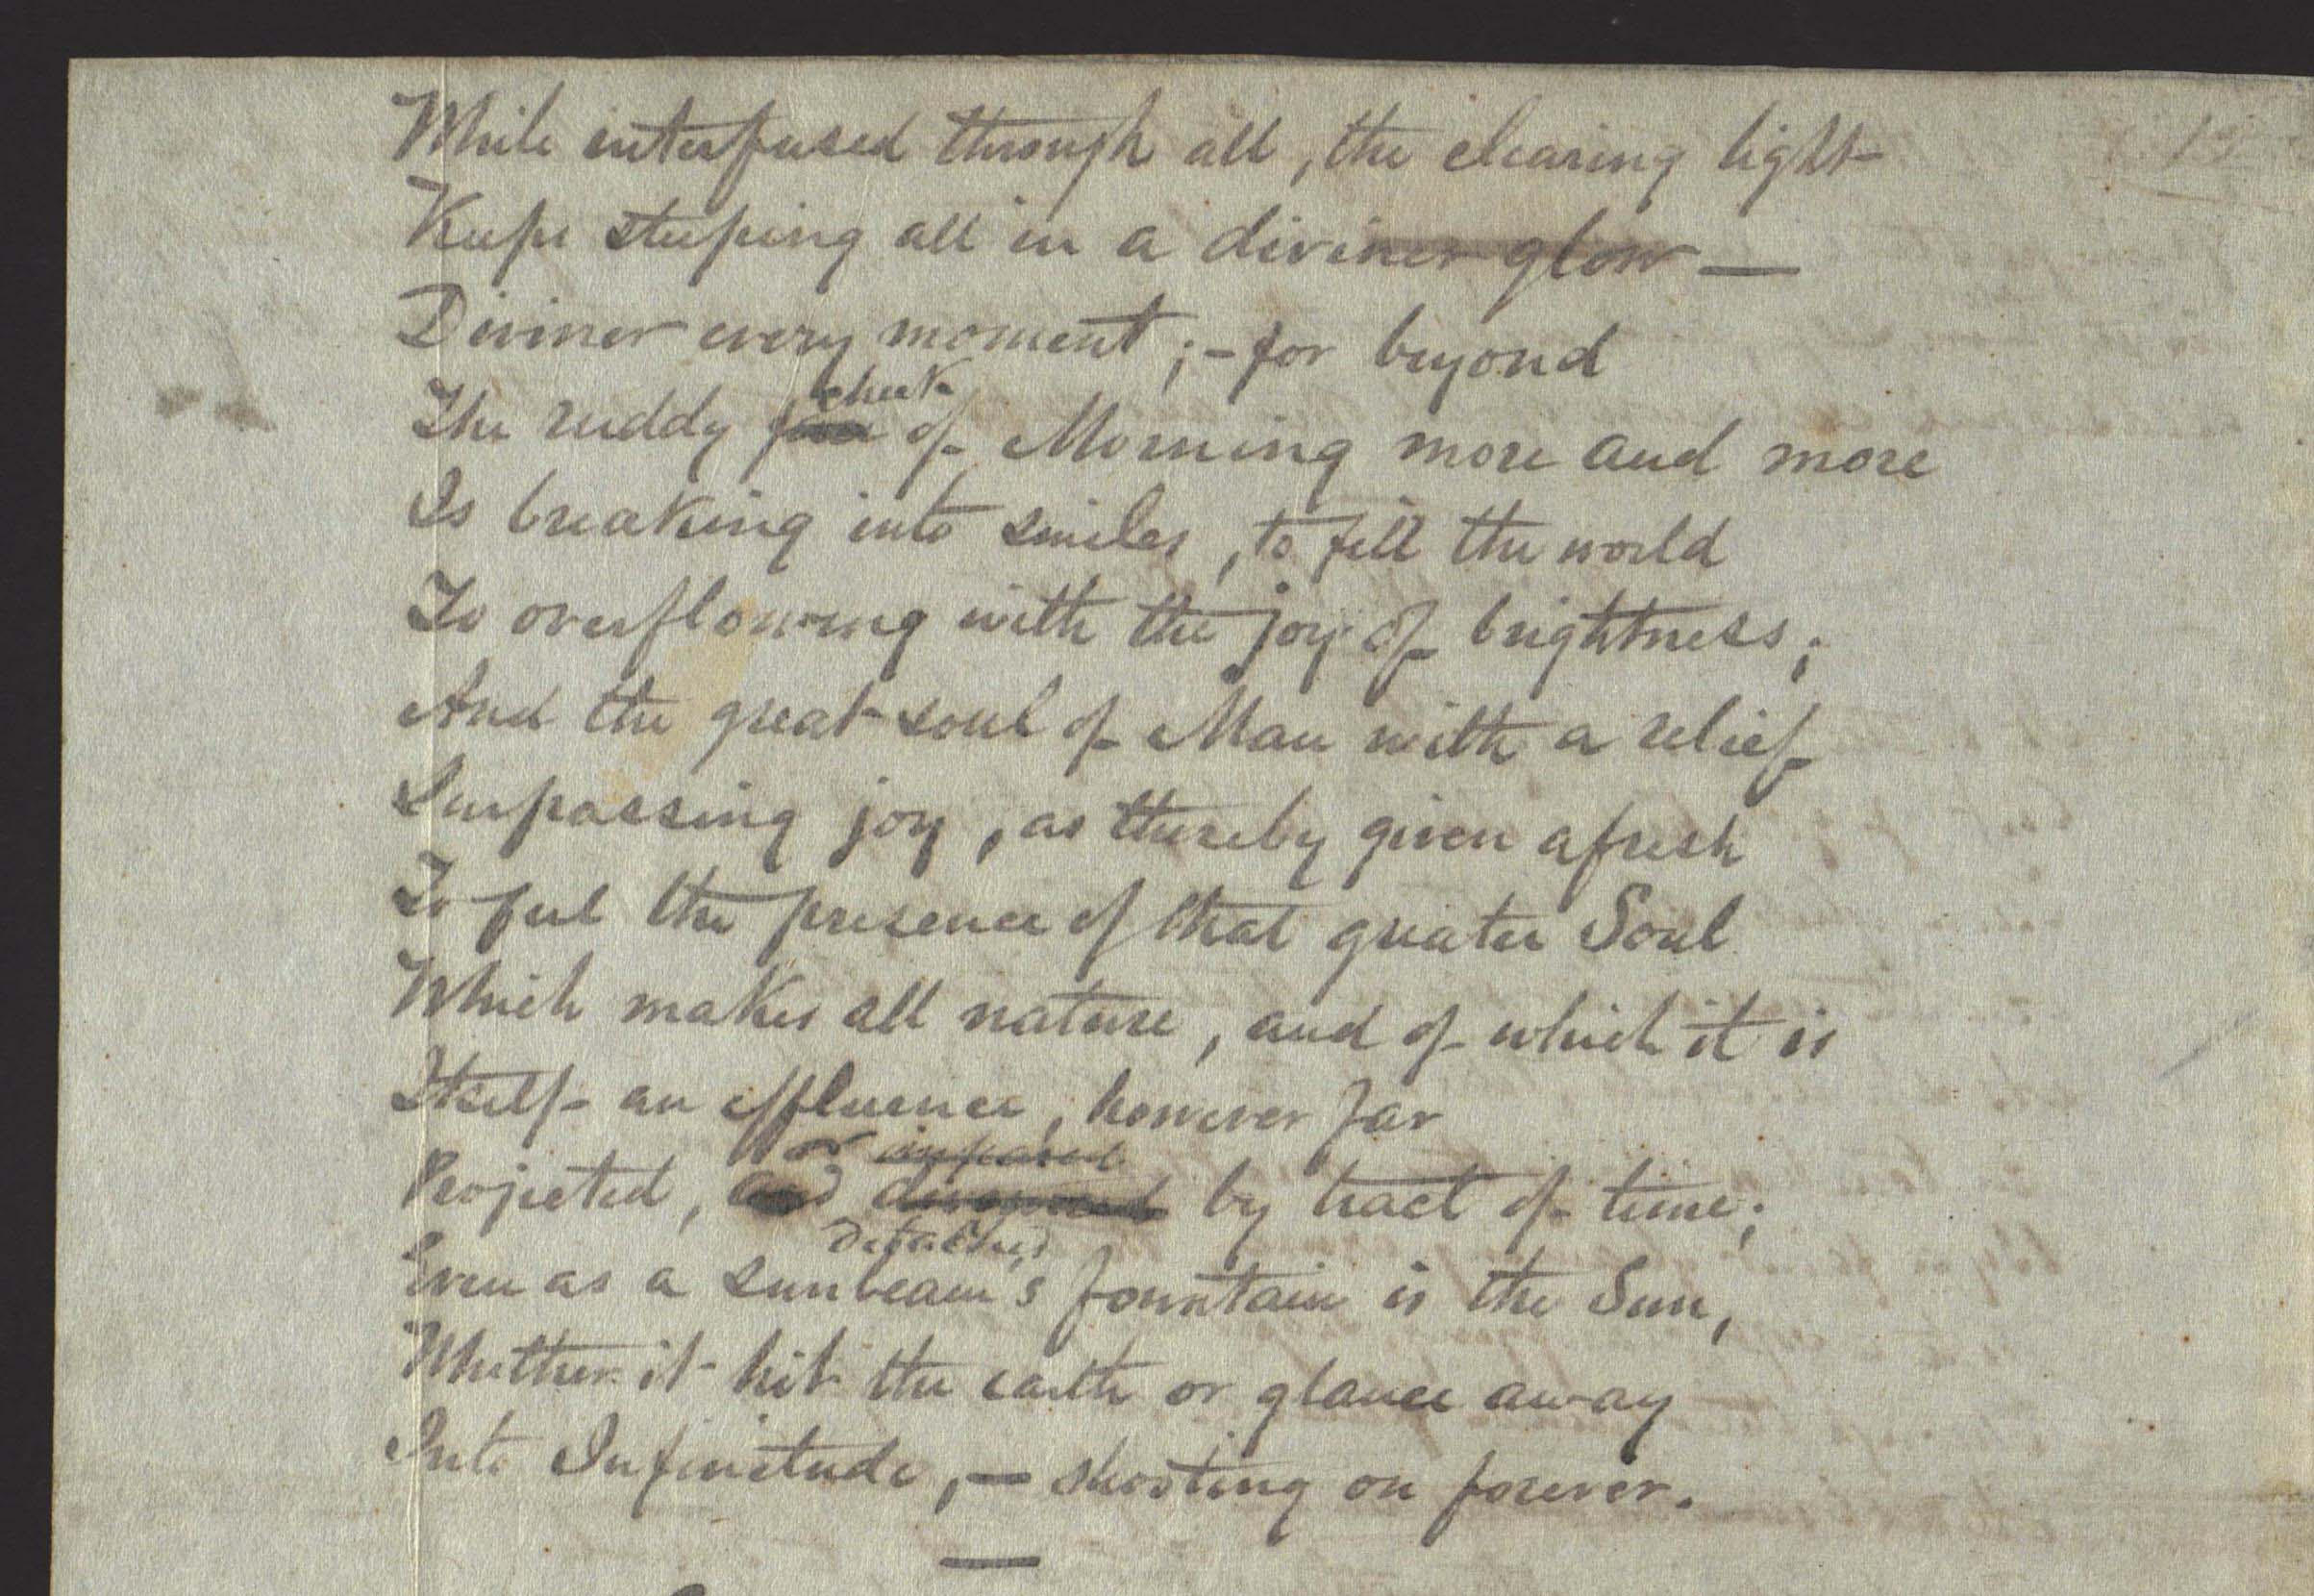 While interfused through all, the clearing light
Keeps steeping all in a diviner glow —
Diviner every moment; - for beyond
cheek
The ruddy face of Morning more and more
Is breaking into smiles, to fill the world
To overflowing with the joy of brightness;
And the great soul of Man with a relief
Surpassing joy, as thereby given afresh
To feel the presence of that greater Soul
Which makes all nature, and of which it is
Itself an effluence, however far
or
Projected, and by tract of time;
detached
Even as a sunbeam's fountain is the Sun,
Whether it hit the earth or glance away
Into Infinitude, — shooting on forever.